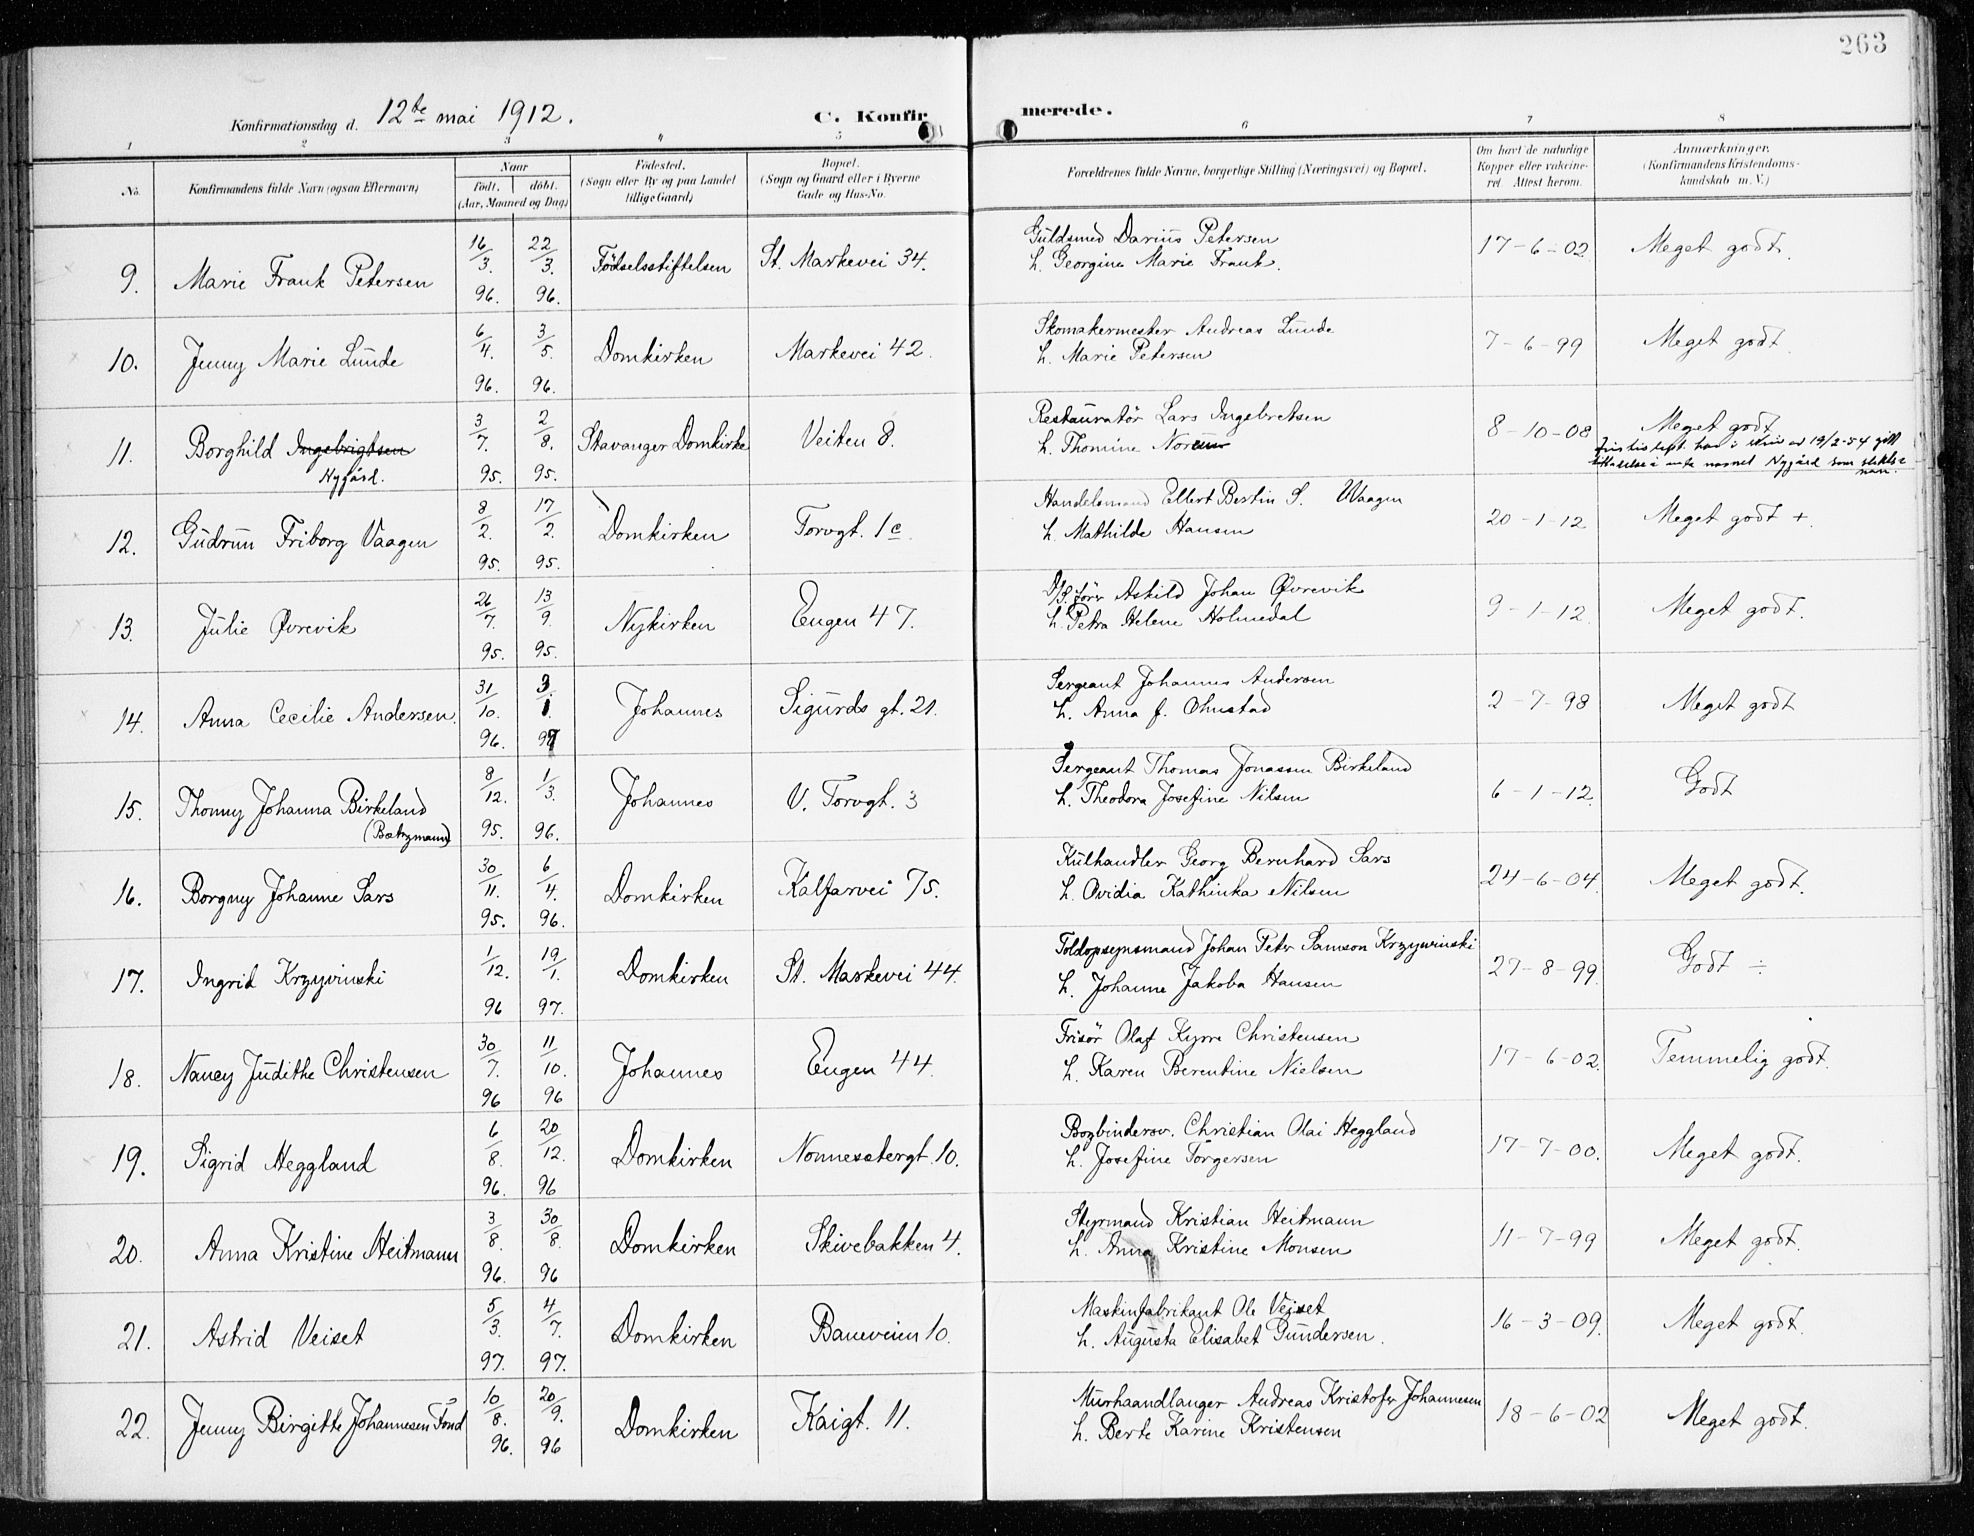 263
Konfirmationsdag d. 12te mai 1912. C. Konfirmerede.
1 2 3 4 5 6 7 8
No. Konfirmandens fulde Navn (ogsaa Efternavn) Naar født. døbt. (Aar, Maaned og Dag) Fødested. (Sogn eller By og paa Landet tillige Gaard) Bopæl. (Sogn og Gaard eller i Byerne Gade og Hus-No. Forældrenes fulde Navne, borgerlige Stilling (Næringsvei) og Bopæl. Om havt de naturlige Kopper eller vakcineret. Attest herom. Anmærkninger. (Konfirmandens Kristendomskundskab m. V.)
9. Marie Frank Petersen 16/3. 96. 22/3. 96. Fødselsstiftelsen St. Markevei 34. Guldsmed Darius Petersen
h. Georgine Marie Frank. 17-6-02 Meget godt.
10. Jenny Marie Lunde 6/4. 96. 3/5. 96. Domkirken Markevei 42. Skomakermester Andreas Lunde
h. Marie Petersen 7-6-99 Meget godt.
11. Borghild Ingebrigtsen 3/7. 95. 2/8. 95. Stavanger Domkirke Veiten 8. Restauratør Lars Ingebretsen
Nygård. h. Thomine 8-10-08 Meget godt
19/2-54 navnet Nygård som slekts-
navn.
12. Gudrun Friborg Vaagen 8/2. 95. 17/2. 95. Domkirken Torvgt. 1c. Handelsmand Ellert Bertin S. Waagen
h. Mathilde Hansen 20-1-12 Meget godt +.
13. Julie Øvrevik 26/7. 95. 13/9. 95. Nykirken Engen 47. D/S fører Askild Johan Øvrevik
h. Petra Helene Holmedal 9-1-12. Meget godt.
14. Anna Cecilie Andersen. 31/10. 96. 3/1. 97 Johannes Sigurds gt. 21. Sergeant Johannes Andersen
h. Anna f. Ohnstad 2-7-98 Meget godt
15. Thonny Johanna Birkeland 8/12. 95. 1/3. 96. Johannes V. Torvgt. 3 Sergeant Thomas Jonassen Birkeland
(Bøtzmann) h. Theodora Josefine Nilsen 6-1-12. Godt
16. Borgny Johanne Sars 30/11. 95. 6/4. 96. Domkirken Kalfarvei 75. Kulhandler Georg Bernhard Sars
h. Ovidia Kathinka Nilsen 24-6-04. Meget godt.
17. Ingrid Krzyvinski 1/12. 96 19/1. 97. Domkirken St. Markevei 44. Toldopsynsmand Johan Peter Samson Krzywinski
h. Johanne Jakoba Hansen 27-8-99. Godt ÷.
18. Nancy Judithe Christensen 30/7. 96 11/10. 96 Johannes Engen 44. Frisør Olaf Kyrre Christensen
h. Karen Berentine Nielsen 17-6-02. Temmelig godt.
19. Sigrid Heggland 6/8. 96. 20/12. 96 Domkirken Nonnestergt. 10. Bogbindersv. Christian Olai Heggland
h. Josefine Torgersen 17-7-00. Meget godt.
20. Anna Kristine Heitmann 3/8. 96. 30/8. 96 Domkirken Skivebakken 4. Styrmand Kristian Heitmann
h. Anna Kristine Monsen 11-7-99 Meget godt.
21. Astrid Veiset 5/3. 97. 4/7. 97. Domkirken Baneveien 10. Maskinfabrikant Ole Veiset
h. Augusta Elisabet Gundersen. 16-3-09. Meget godt.
22. Jenny Birgitte Johannesen Fond 10/8. 96. 20/9. 96 Domkirken Kaigt. 11. Murhaandlanger Andreas Kristofer Johannesen
h. Berte Karine Kristensen 18-6-02 Meget godt.